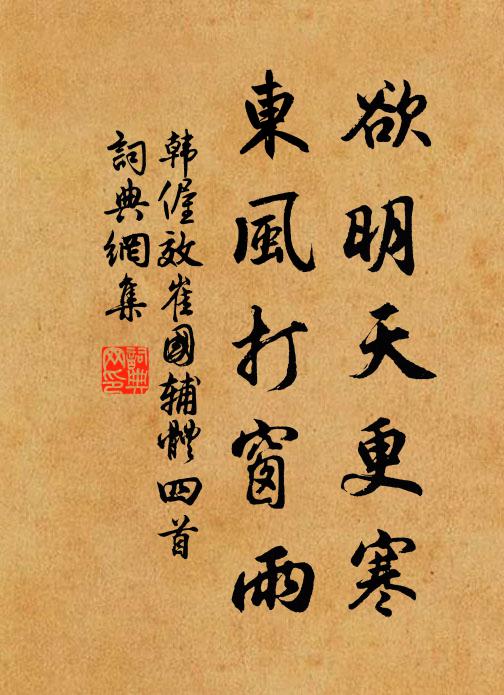 欲明天更寒
東風打窗雨
韩偓效崔國辅體四首
詞典網集
詞典網印